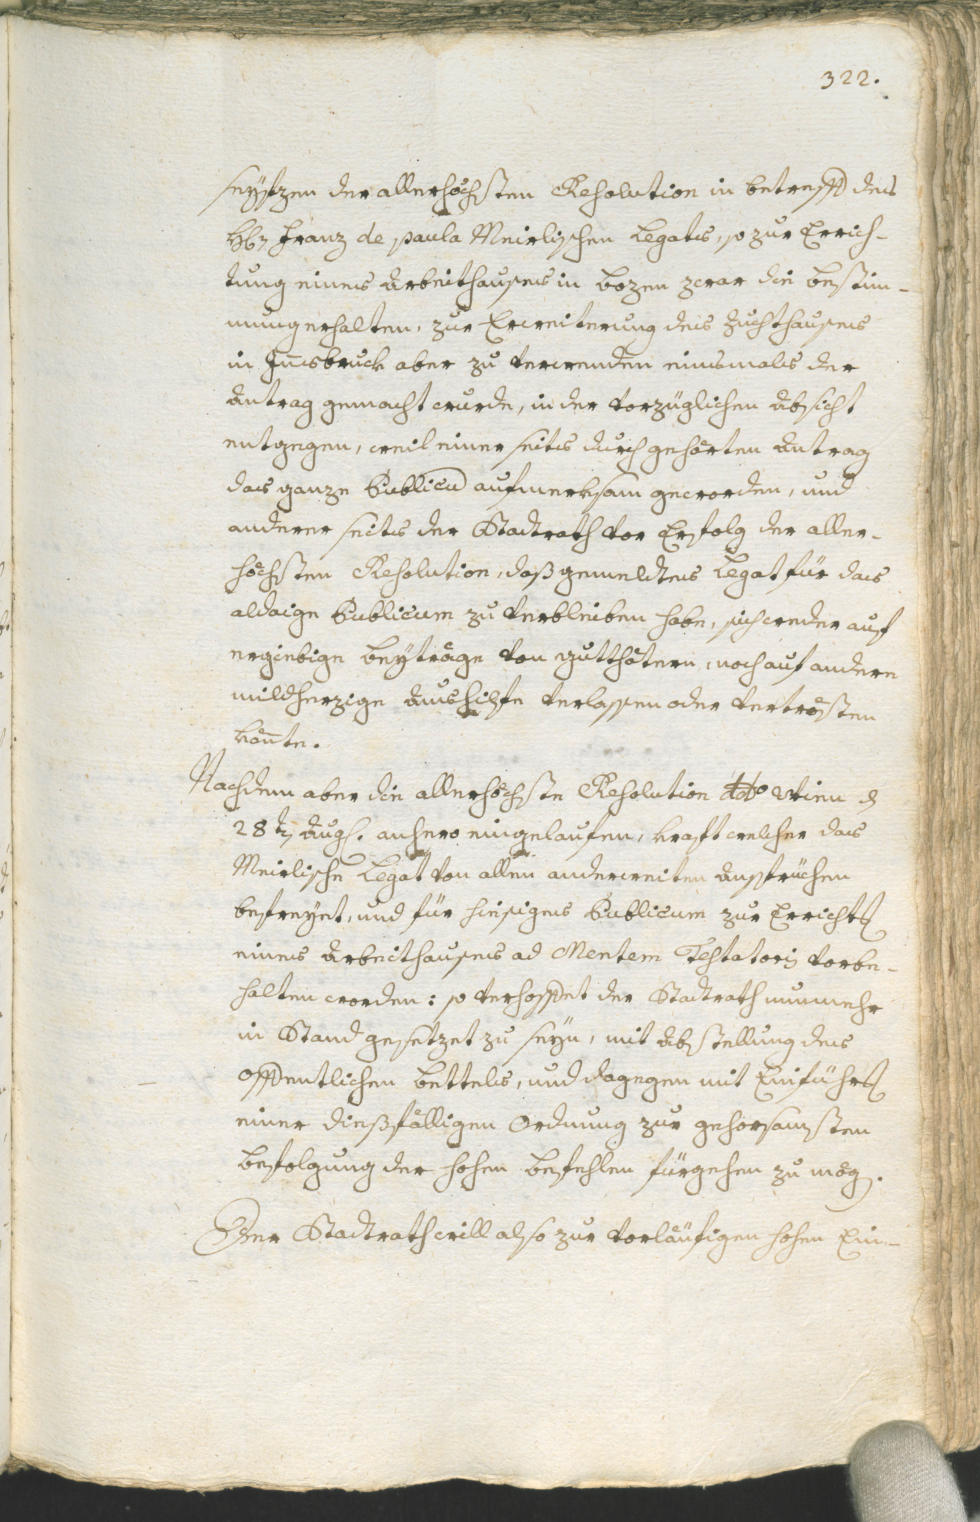 322.
seyszen der allerhöchsten Resolution in betreff des
Franz de paula Meirlischen Legats, so zur Errich-
tung eines Arbeithauses in bozen zwar die bestim-
mung erhalten, zur Erweiterung des Zuchthauses
in Innsbruck aber zu verwenden einsmals der
Antrag gemacht wurde, in der vorzüglichen Absicht
entgegen, weil einer seits durch gehörten Antrag
das ganze Publicu aufmerksam geworden, und
anderer seits der Stadtrath vor Erfolg der aller-
höchsten Resolution, daß gemeldtes Legat für das
aldaige Publicum zu verbleiben habe, sich weder auf
ergiebige beyträge von gutthätern, noch auf andere
mildherzige Aushilfe verlassen oder vertrösten
könnte.
Nachdem aber die allerhöchste Resolution ddo Wien d
28t Augs. anhero eingelaufen, kraft welcher das
Meirlische Legat von allen anderweiten Ansprüchen
befreyet, und für hiesiges Publicum zur Erricht
eines Arbeithauses ad Mentem Testatoris vorbe-
halten worden: so verhoffet der Stadtrath nunmehr
in Stand gesetzet zu seyn, mit Abstellung des
offentlichen bettels, und dagegen mit Einführ
einer dießfälligen Ordnung zur gehorsamsten
befolgung der hohen befehlen fürgehen zu mög.
Der Stadtrath will also zur vorläufigen hohen Ein-